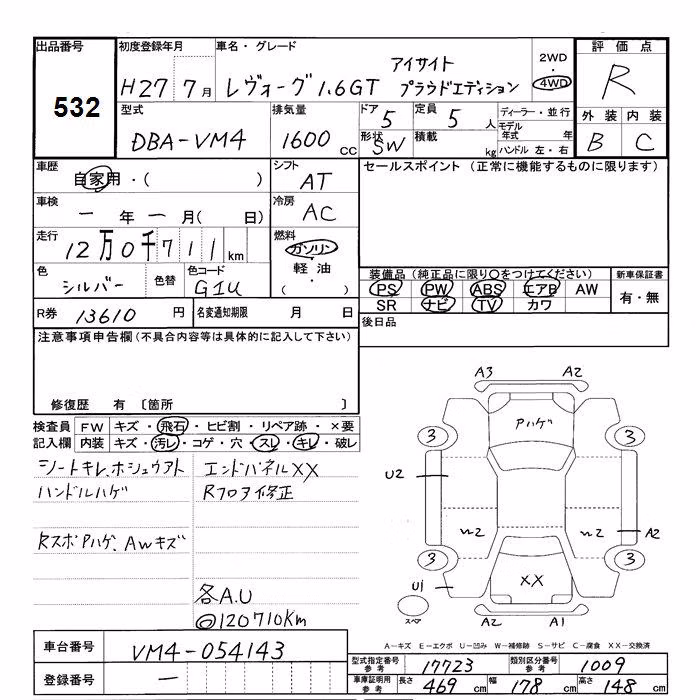 出品番号 初度登録年月 車名・グレード 評価点
532
H27 7月 レヴォーグ 1.6GT アイサイト プラウドエディション
2WD
4WD
R
型式 排気量 ドア 定員 ディーラー・並行 外装 内装
DBA-VM4 1600 CC 5 5 人 モデル年式 年 B C
形状 SW 積載 kg ハンドル 左・右
車歴 自家用・( ) シフト AT セールスポイント (正常に機能するものに限ります)
車検 一年一月( 日) 冷房 AC
走行 12万0千711km 燃料 ガソリン 軽油 ( )
色 シルバー 色替 色コード G1U
装備品(純正品に限り○をつけてください) 新車保証書
PS PW ABS エアB AW 有・無
SR ナビ TV カワ
R券 13610 円 名変通知期限 月 日 後日品
注意事項申告欄(不具合内容等は具体的に記入して下さい)
修復歴 有 〔箇所 〕
検査員 FW キズ・飛石・ヒビ割・リペア跡・×要
記入欄 内装 キズ・汚レ・コゲ・穴・スレ・キレ・破レ
シートキレ、ホシュウアト エンドパネルXX
ハンドルハゲ Rフロア修正
RスポPハゲ、AWキズ
各A.U
◎120710Km
A3 A2
Pハゲ
3 3
U2
A2
3 3
XX
U1
スペア
A2 A1
A-キズ E-エクボ U-凹み W-補修跡 S-サビ C-腐食 XX-交換済
車台番号 VM4-054143
登録番号 一
型式指定番号 参考 17723 類別区分番号 参考 1009
車庫証明用 参考 長さ 469 cm 幅 178 cm 高さ 148 cm